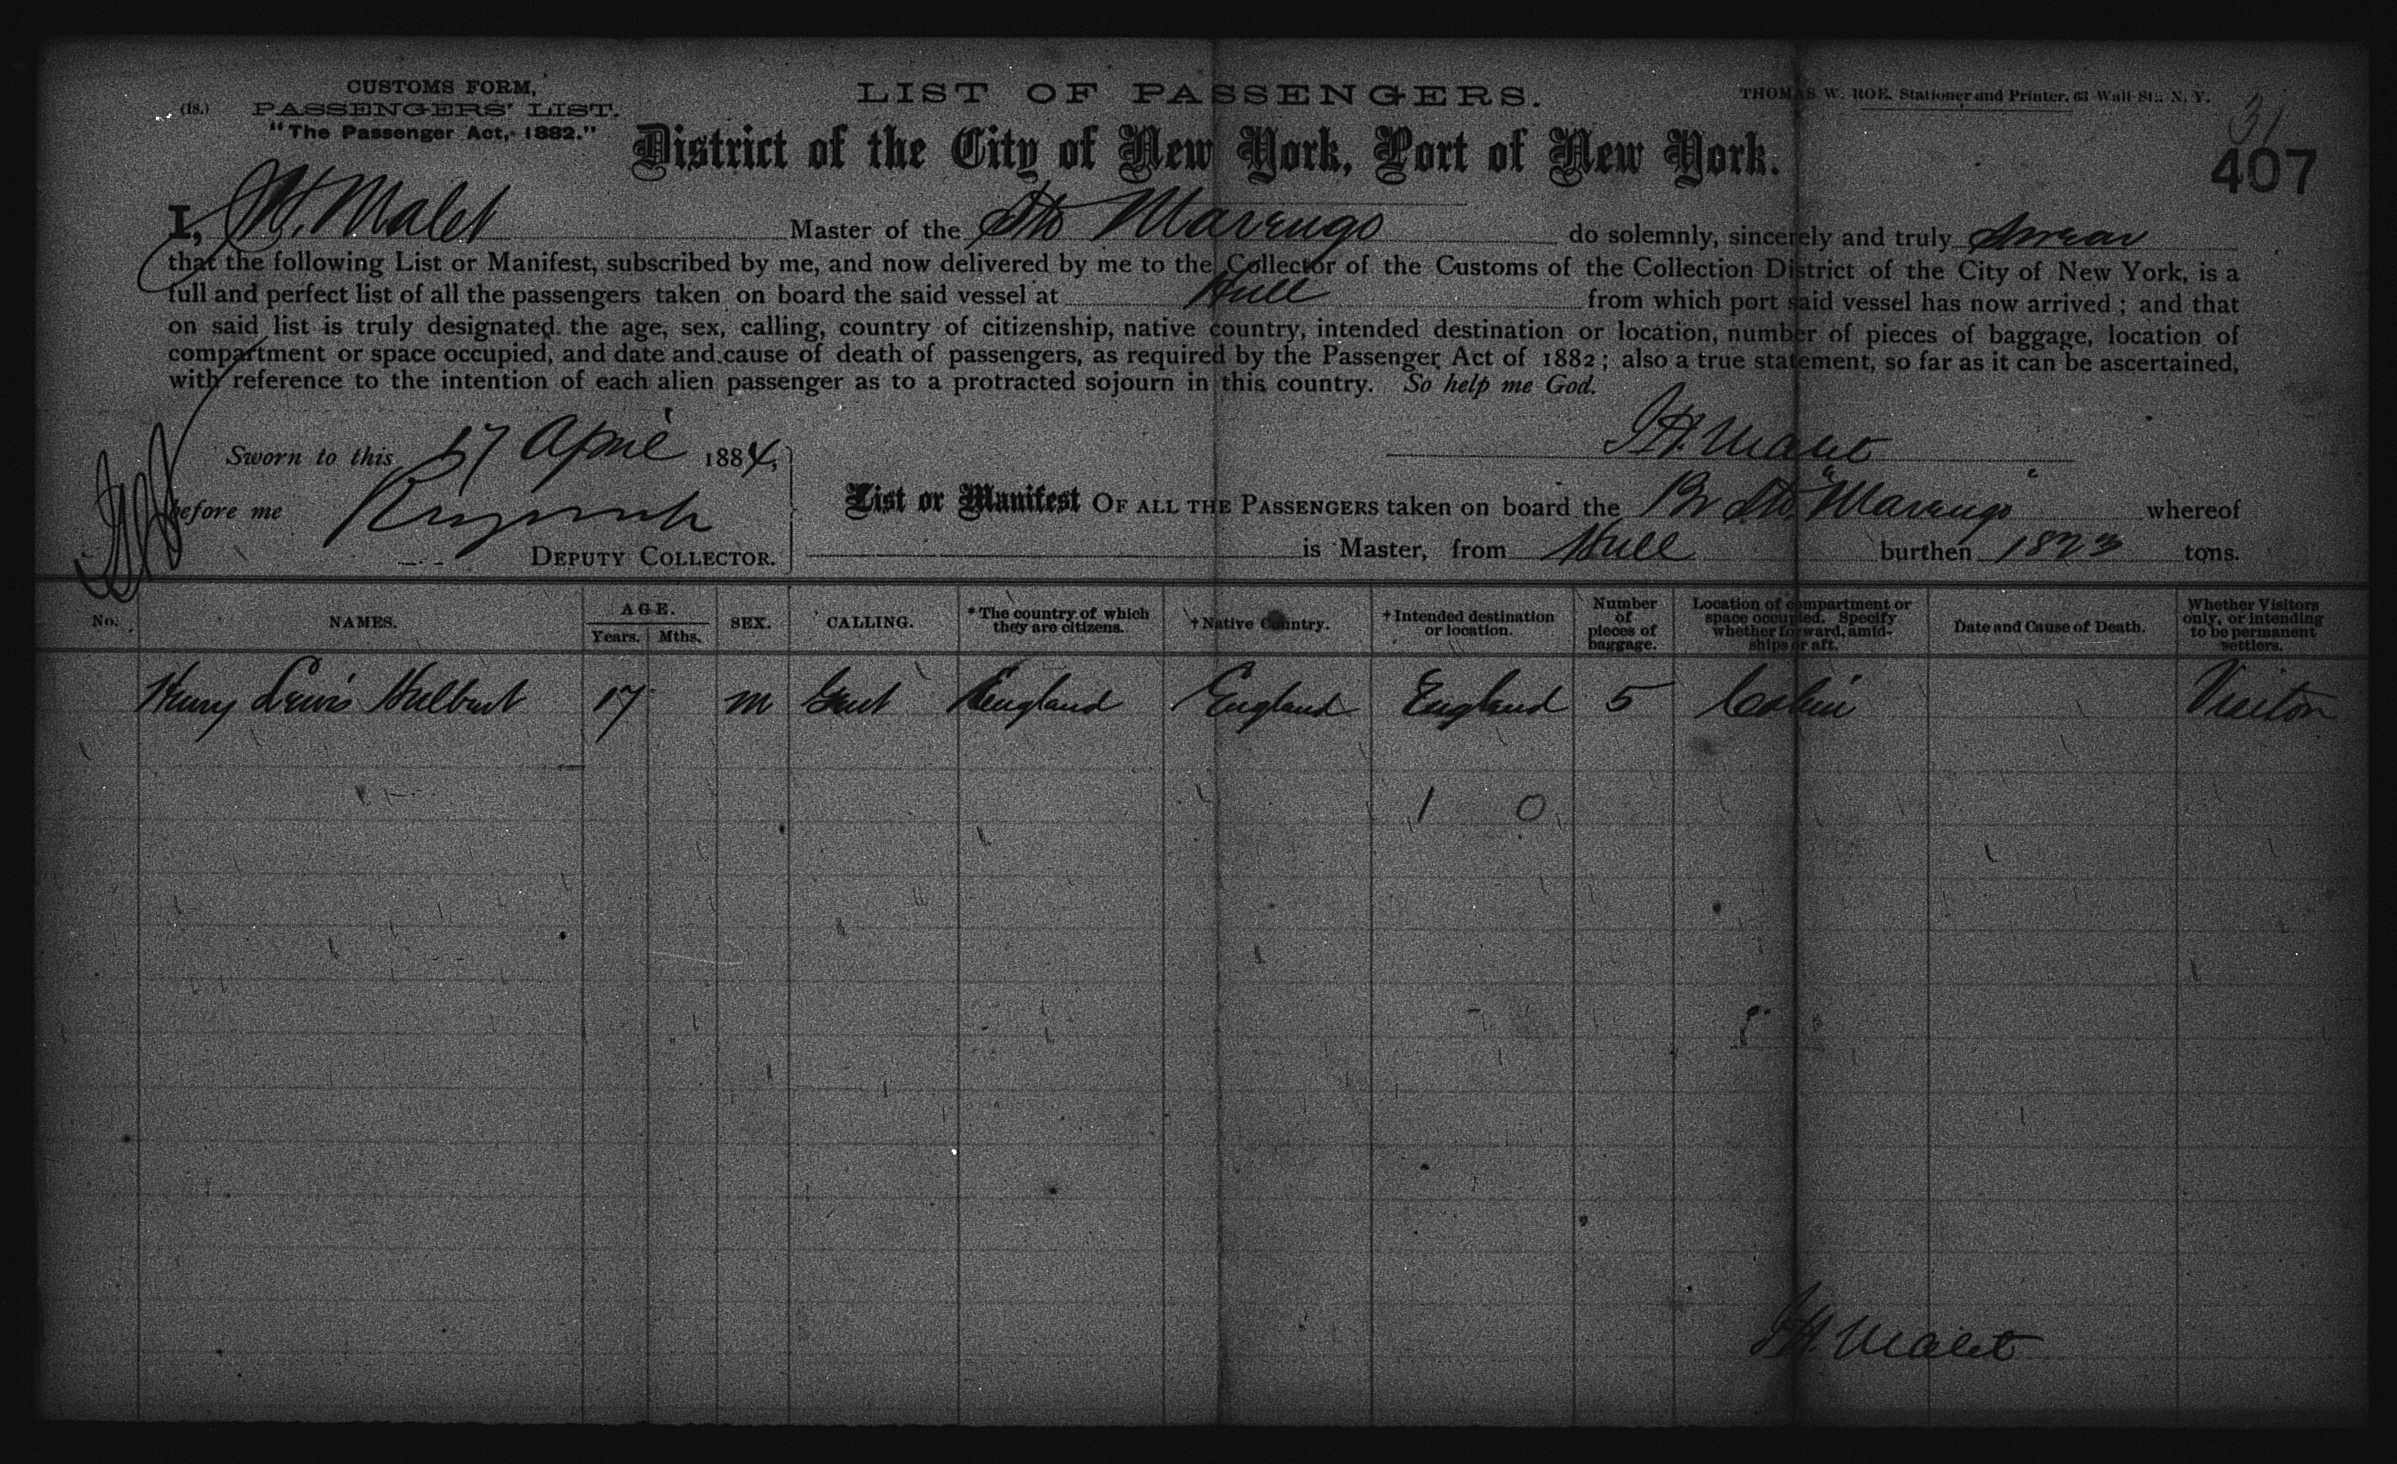 CUSTOMS FORM,
(18.) PASSENGERS' LIST.
"The Passenger Act, 1882."
LIST OF PASSENGERS.
THOMAS W. ROE, Stationer and Printer, 63 Wall St., N. Y.
31
407
District of the City of New York, Port of New York.
I, J. H. Malet Master of the Str Marengo do solemnly, sincerely and truly Swear
that the following List or Manifest, subscribed by me, and now delivered by me to the Collector of the Customs of the Collection District of the City of New York, is a
full and perfect list of all the passengers taken on board the said vessel at Hull from which port said vessel has now arrived; and that
on said list is truly designated the age, sex, calling, country of citizenship, native country, intended destination or location, number of pieces of baggage, location of
compartment or space occupied, and date and cause of death of passengers, as required by the Passenger Act of 1882; also a true statement, so far as it can be ascertained,
with reference to the intention of each alien passenger as to a protracted sojourn in this country. So help me God.
J. H. Malet
Sworn to this 17 April 1884,
before me
DEPUTY COLLECTOR.
List or Manifest OF ALL THE PASSENGERS taken on board the Br Str. "Marengo" whereof
is Master, from Hull burthen tons.
No. NAMES. AGE. Years. Mths. SEX. CALLING. *The country of which they are citizens. †Native Country. †Intended destination or location. Number of pieces of baggage. Location of compartment or space occupied. Specify whether forward, amidships or aft. Date and Cause of Death. Whether Visitors only, or intending to be permanent settlers.
Henry Lewis Hulbert 17 M Gent England England England 5 Cabin Visitor
1 0
J. H. Malet